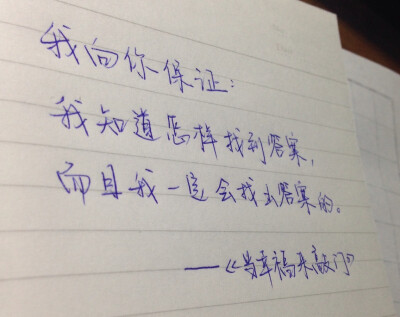 我向你保证:
我知道怎样找到答案,
而且我一定会找出答案的。
——《当幸福来敲门》